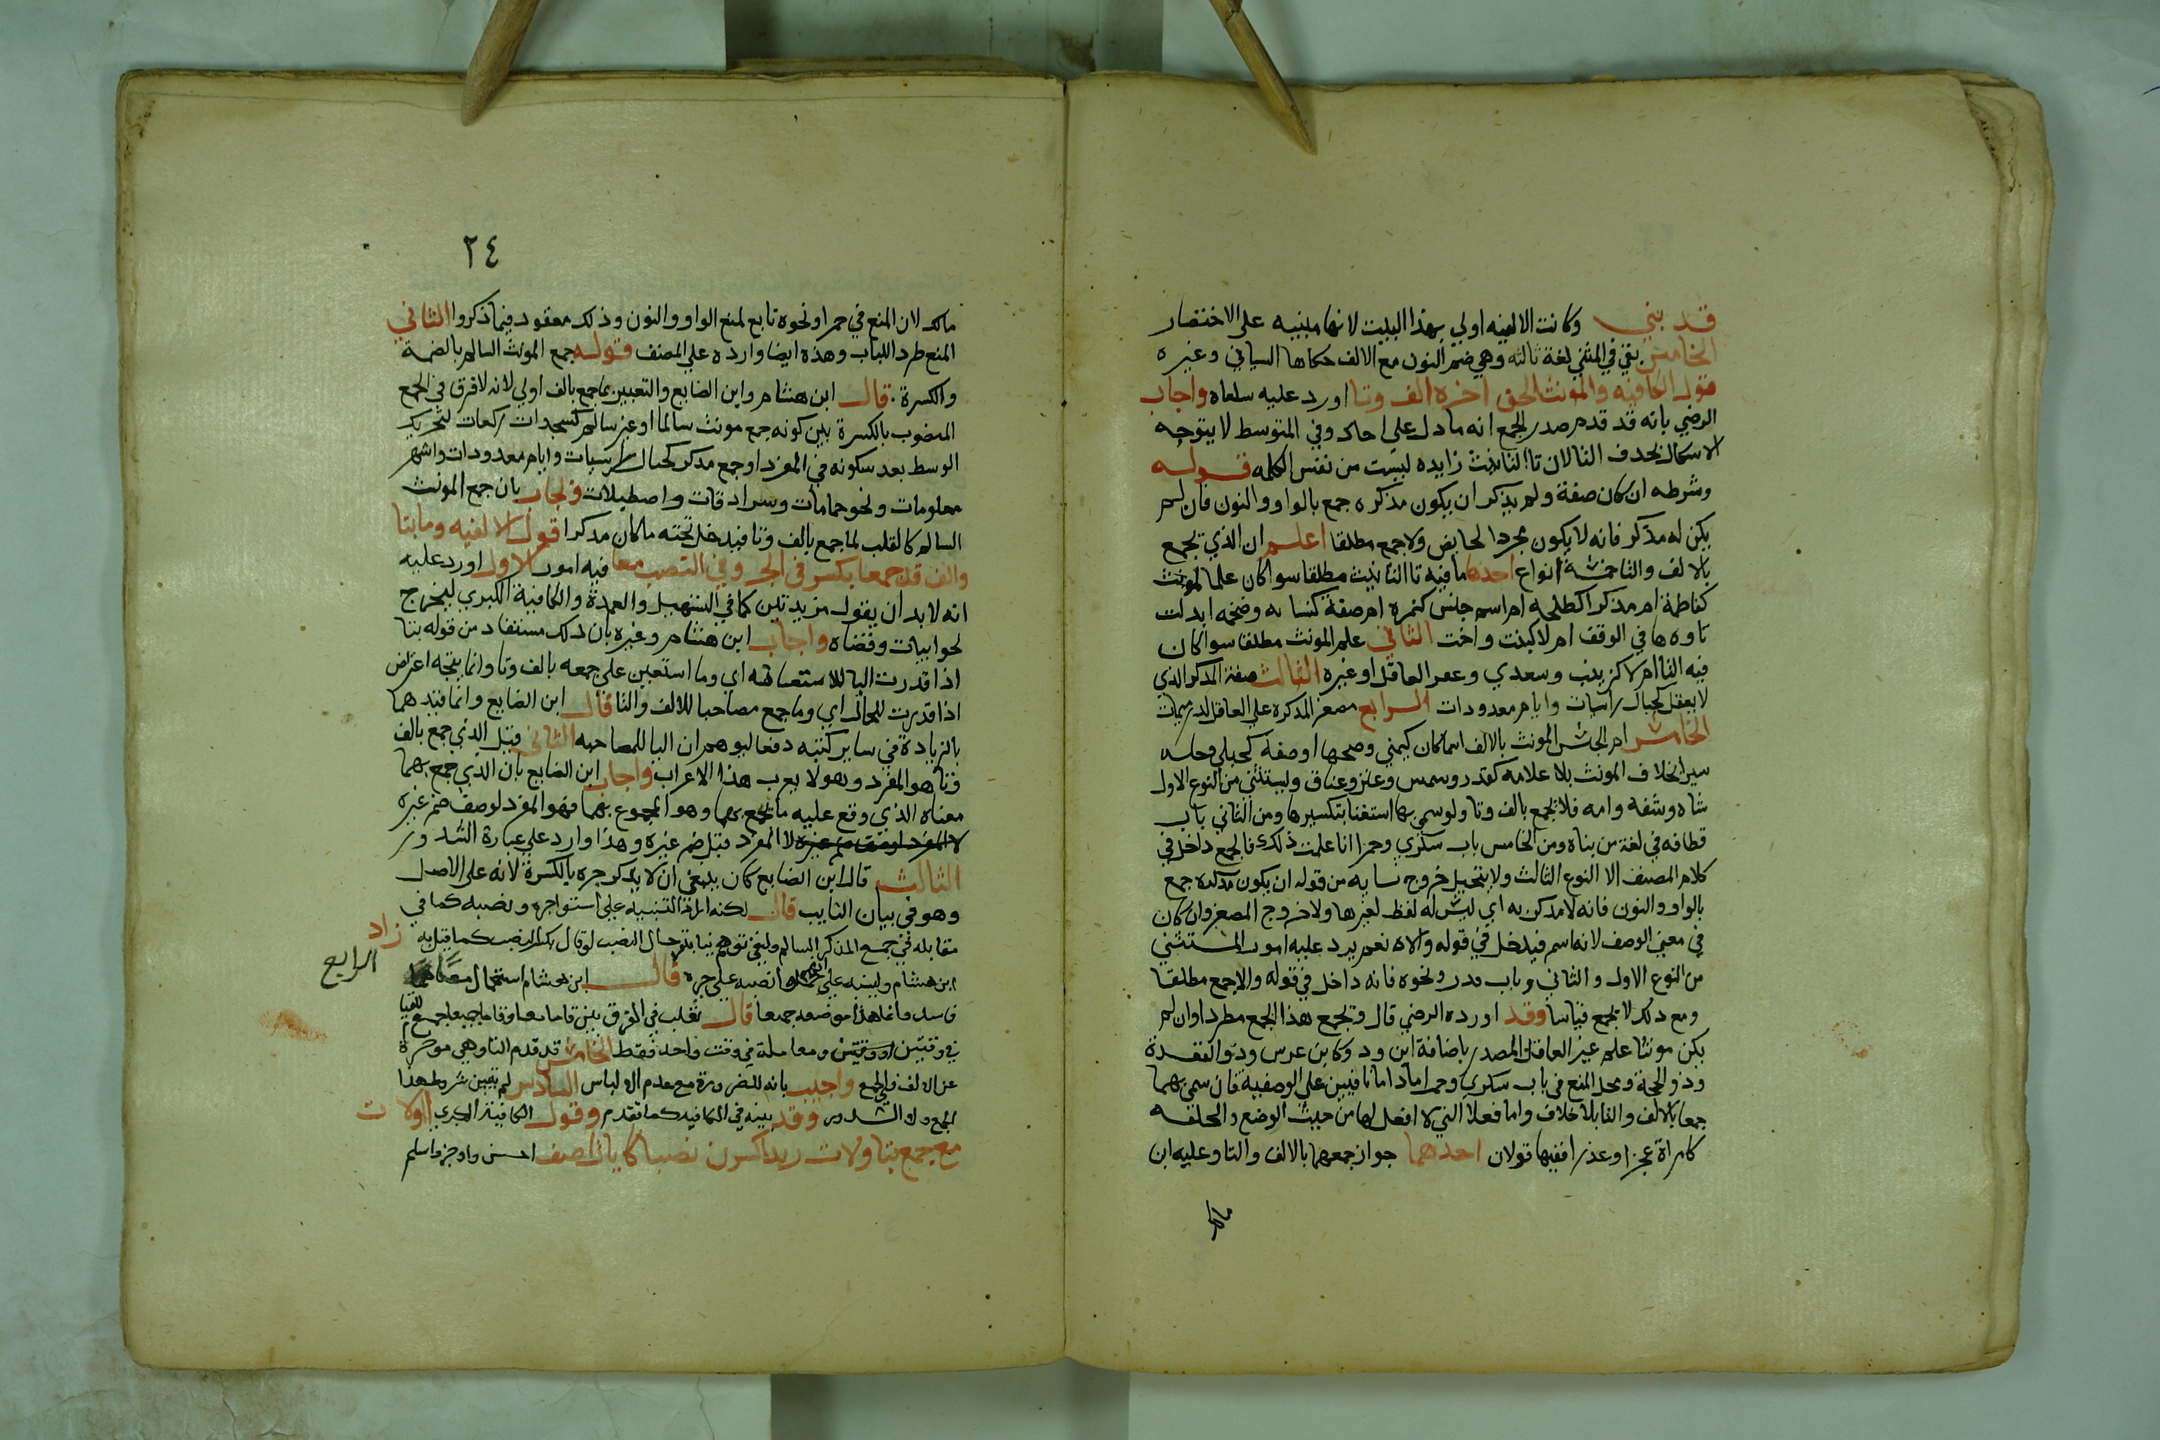 قد بني وكانت الالفيه اولي بهذا البيت لانها مبنيه علي الاختصار
الخامس بقي في المثني لغة ثالثه وهي ضم النون مع الالف حكاها الشيباني وغيره
قول الكافيه والمونث الحق اخره الف وتا اورد عليه سلعاه واجاب
الرضي بانه قد قدم صدر الجمع انه ما دل علي احاد وفي المتوسط لا يتوجه
الاشكال بحذف التا لان تا التانيث زايده ليست من نفس الكلمه قوله
وشرطه ان كان صفة وله مذكر ان يكون مذكره جمع بالواو والنون فان لم
يكن له مذكر فانه لا يكون مجردا كحايض والا جمع مطلقا اعلم ان الذي يجمع
بالالف والتا خمسة انواع احدها ما فيه تا التانيث مطلقا سوا كان علما لمونث
كفاطمة ام مذكر كطلحه ام اسم جنس كثمره ام صفة كنسابه وضخمه ابدلت
تاوه ها في الوقف ام لا كبنت واخت الثاني علم المونث مطلقا سوا كان
فيه التا ام لا كزينب وسعدي وعفرا لعاقل او غيره الثالث صفة المذكر الذي
لا يعقل كجبال راسيات وايام معدودات الرابع مصغر المذكر علي العاقل كدريهمات
الخامس اسم الجنس المونث بالالف اسما كان كبهمي وصحرا او صفة كحبلي وحله
سيرا بخلاف المونث بلا علامه كقدر وشمس وعنز وعناق ويستثني من النوع الاول
شاه وشفه وامه فلا تجمع بالف وتا ولو سمي بها استغنا بتكسيرها ومن الثاني باب
قطام في لغة من بناه ومن الخامس باب سكري وحمرا اذا علمت ذلك فالجمع داخل في
كلام المصنف الا النوع الثالث ولا يتخيل خروج نسابه من قوله ان يكون مذكره جمع
بالواو والنون فانه لا مذكر به اي ليس له لفظ لغيرها ولا خروج المصغر وان كان
في معني الوصف لانه اسم فيدخل في قوله والا نعم يرد عليه امور المستثني
من النوع الاول والثاني وباب قدر ونحوه فانه داخل في قوله والا جمع مطلقا
ومع ذلك لا يجمع قياسا وقد اورده الرضي قال وتجمع هذا الجمع مطردا وان لم
يكن مونثا علم غير العاقل المصدر باضافة ابن وذو كابن عرس وذو القعدة
وذو الحجة ومحل المنع في باب سكري وحمرا ما داما باقيين علي الوصفية فان سمي بهما
جمعا بالالف والتا بلا خلاف واما فعلا التي لا افعل لها من حيث الوضع والخلقه
كامراة عجزا وعذرا ففيها قولان احدهما جواز جمعهما بالالف والتا وعليه ابن
مالك
٢٤
مالك لان المنع في حمرا ونحوه تابع لمنع الواو والنون وذلك مفقود فيما ذكروا الثاني
المنع طردا للباب وهذه ايضا وارده علي المصنف قوله جمع المونث السالم بالضمة
والكسرة قال ابن هشام وابن الضايع والتعبير بما جمع بالف اولي لانه لا فرق في الجمع
المنصوب بالكسرة بين كونه جمع مونث سالما او غير سالم كسجدات ركعات لتحريك
الوسط بعد سكونه في المفرد او جمع مذكر كجبال راسيات وايام معدودات واشهر
معلومات ونحو حمامات وسرادقات واصطبلات واجاب بان جمع المونث
السالم كاللقب لما جمع بالف وتا فيدخل تحته ما كان مذكرا قول الالفيه وما بتا
والف قد جمعا يكسر في الجر وفي النصب معا فيه امور الاول اورد عليه
انه لا بد ان يقول مزيدتين كما في التسهيل والعمدة والكافية الكبري ليخرج
نحو ابيات وقضاه واجاب ابن هشام وغيره بان ذلك مستفاد من قوله بتا
اذا قدرت البا للاستعانه اي وما استعين علي جمعه بالف وتا وانما يتجه اعتراض
اذا قدرت للحال اي وما جمع مصاحبا للالف والتا قال ابن الضايع وانما قيدهما
بالزيادة في ساير كتبه دفعا لتوهم ان البا للمصاحبه الثاني قيل الذي جمع بالف
وتا هو المفرد وهو لا يعرب هذا الاعراب واجاب ابن الضايع بان الذي جمع بهما
معناه الذي وقع عليه ما جمع بهما وهو المجموع بهما فهو المفرد لوصف ضم غيره
لا المفرد قبل ضم غيره وهذا وارد علي عبارة الشذور
الثالث قال ابن الضايع كان ينبغي ان لا يذكر جره بالكسرة لانه علي الاصل
وهو في بيان النايب قال لكنه اراد التنبيه علي استواجره ونصبه كما في
مقابله في جمع المذكر السالم ولينفي توهم نيابة جر حال النصب لو قال بكسر نصب كما قيل به زاد
ابن هشام ولينبه علي انهم حملوا نصبه علي جره قال ابن هشام استعمال معا الرابع
فاسد معا هذا موضعه جميعا قال ثعلب في الفرق بين قاما معا وقاما جميعا جميع للقيام
في وقتين ومعا سلة في وقت واحد فقط الخامس قد قدم التا وهي موخرة
عن الالف في الجمع واجيب بانه للضرورة مع عدم الالباس السادس لم يبين شروط هذا
الجمع ولا الشذور وقد بينه في الكافيه كما تقدم وقول الكافية الكبري اولات
مع جمع بتا ولات زيدا كسرن نصبا كاياتا صف احسن واوجز واسلم